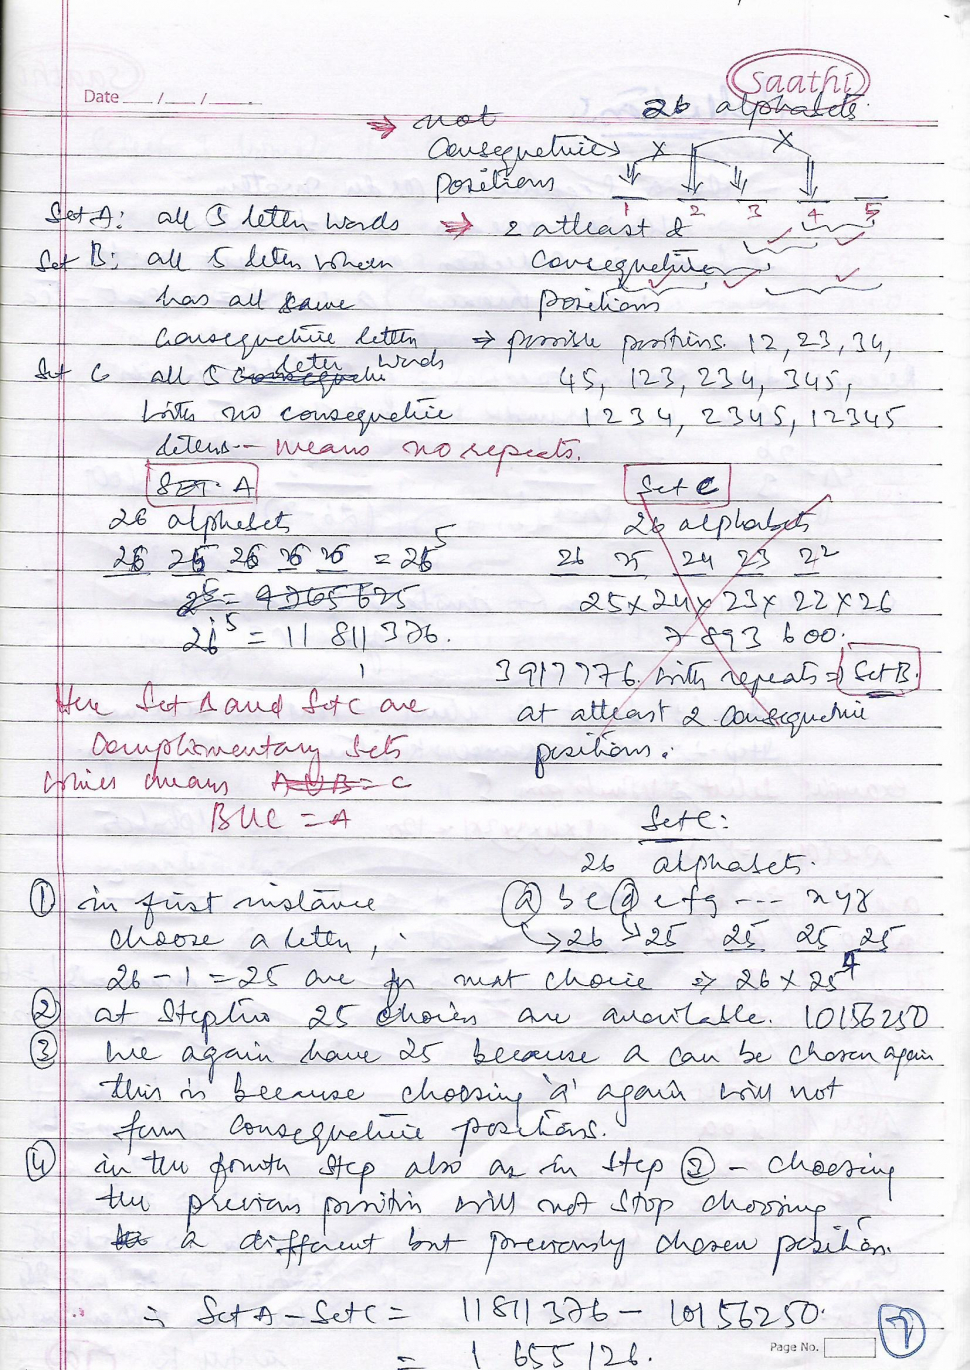 Saathi
Date ___/___/___
26 alphabets.
⇒ not
Consequetive
positions
1 2 3 4 5
Set A: all 5 letter words ⇒ 2 atleast &
Set B: all 5 letter when consequetive
has all same positions
Consequetive letter ⇒ possible positions. 12, 23, 34,
Set C all 5 conseque letter words 45, 123, 234, 345,
with no consequetive 1234, 2345, 12345
letters – means no repeats.
SET. A
26 alphabets
26 26 26 26 26 = 26^5
25^5 = 9765625
26^5 = 11 811 376.
Set C
26 alphabets
26 25 24 23 22
25 x 24 x 23 x 22 x 26
7 893 600.
3917776. with repeats ⇒ Set B.
at atleast 2 consequetive
positions.
Here Set B and Set C are
Complimentary Sets
which means A U B = C
B U C = A
Set C:
26 alphabets.
① in first instance a b c d e f g --- x y z
choose a letter, 26 25 25 25 25
26 - 1 = 25 are for next choice ⇒ 26 x 25^4
② at Step two 25 choices are available. 10156250
③ we again have 25 because a can be chosen again
this is because choosing 'a' again will not
form consequetive positions.
④ in the fourth step also as in step ③ – choosing
the previous position will not stop choosing
a different but previously chosen position.
∴ Set A - Set C = 11811376 - 10156250.
= 1 655 126.
Page No.
7